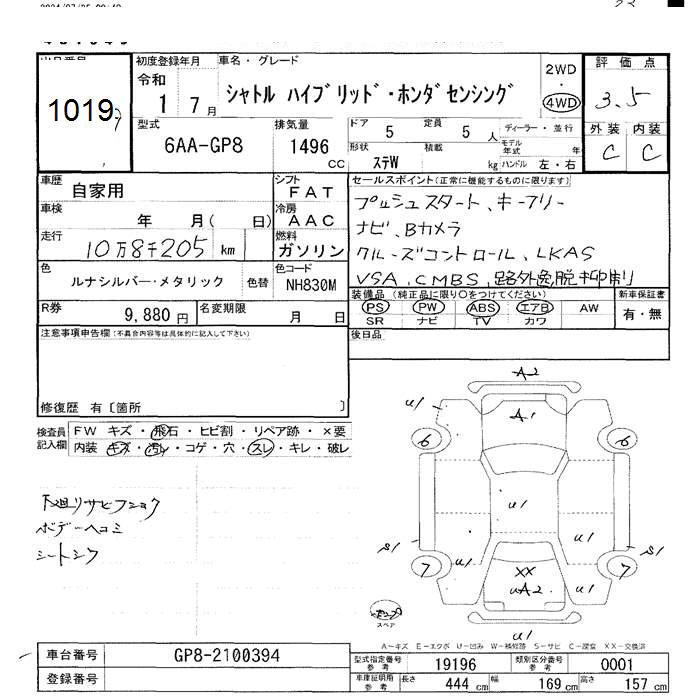 1019
初度登録年月
令和
1 7月
車名・グレード
シャトル ハイブリッド・ホンダセンシング
2WD
・
4WD
評価点
3.5
外装 内装
C C
型式
6AA-GP8
排気量
1496
cc
ドア 5 定員 5 人
形状 ステW 積載 kg
ディーラー・並行
モデル年式 年
ハンドル 左・右
車歴
自家用
シフト
FAT
車検
年 月( 日)
冷房
AAC
走行
10万8千205 km
燃料
ガソリン
色
ルナシルバー・メタリック
色替
色コード
NH830M
R券
9,880 円
名変期限
月 日
セールスポイント(正常に機能するものに限ります)
プッシュスタート、キーフリー
ナビ、Bカメラ
クルーズコントロール、LKAS
VSA、CMBS、路外逸脱抑制
装備品(純正品に限り○をつけてください)
PS PW ABS エアB AW
SR ナビ TV カワ
新車保証書
有・無
後日品
注意事項申告欄(不具合内容等は具体的に記入して下さい)
修復歴 有〔箇所 〕
検査員記入欄
FW キズ・飛石・ヒビ割・リペア跡・×要
内装 キズ・汚れ・コゲ・穴・スレ・キレ・破レ
下廻リサビフショク
ボデーヘコミ
シートシワ
A2
U1 A1 U1
6 6
U1
U1 U1
S1 S1
7 7
XX
U1 UA2 U1
スペア
U1
A-キズ E-エクボ U-凹み W-補修跡 S-サビ C-腐食 XX-交換済
車台番号
GP8-2100394
登録番号
型式指定番号
参考
19196
類別区分番号
参考
0001
車庫証明用
参考
長さ 444 cm 幅 169 cm 高さ 157 cm